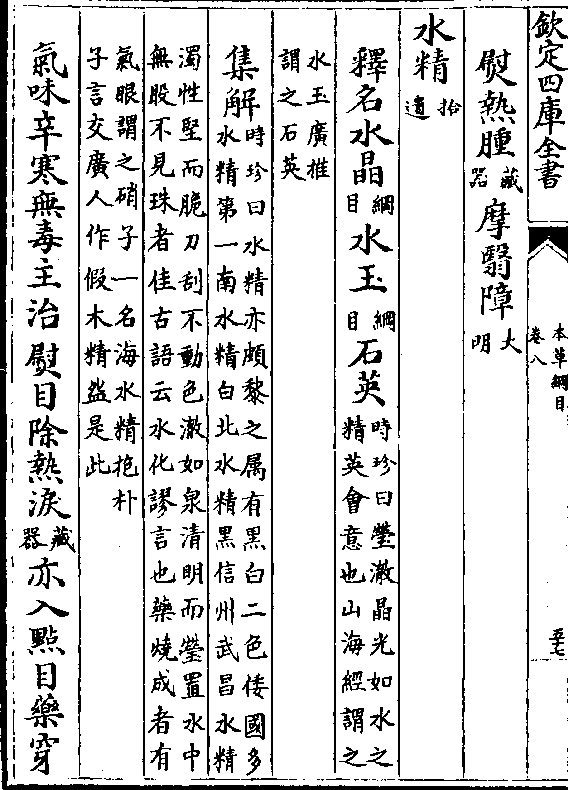 欽定四庫全書
本草綱目
卷八
熨熱腫藏器摩翳障大明
水精拾遺
釋名水晶綱目水玉綱目石英時珍曰瑩澈晶光如水之
精英會意也山海經謂之
水玉廣推
謂之石英
集解時珍曰水精亦頗黎之属有黑白二色倭國多
水精第一南水精白北水精黑信州武昌水精
濁性堅而脆刀刮不動色澈如泉清明而瑩置水中
無股不見珠者佳古語云水化謬言也藥燒成者有
氣眼謂之硝子一名海水精抱朴
子言交廣人作假木精盌是此
氣味辛寒無毒主治熨目除熱淚藏器亦入點目藥穿